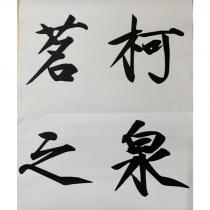 柯泉
茗之